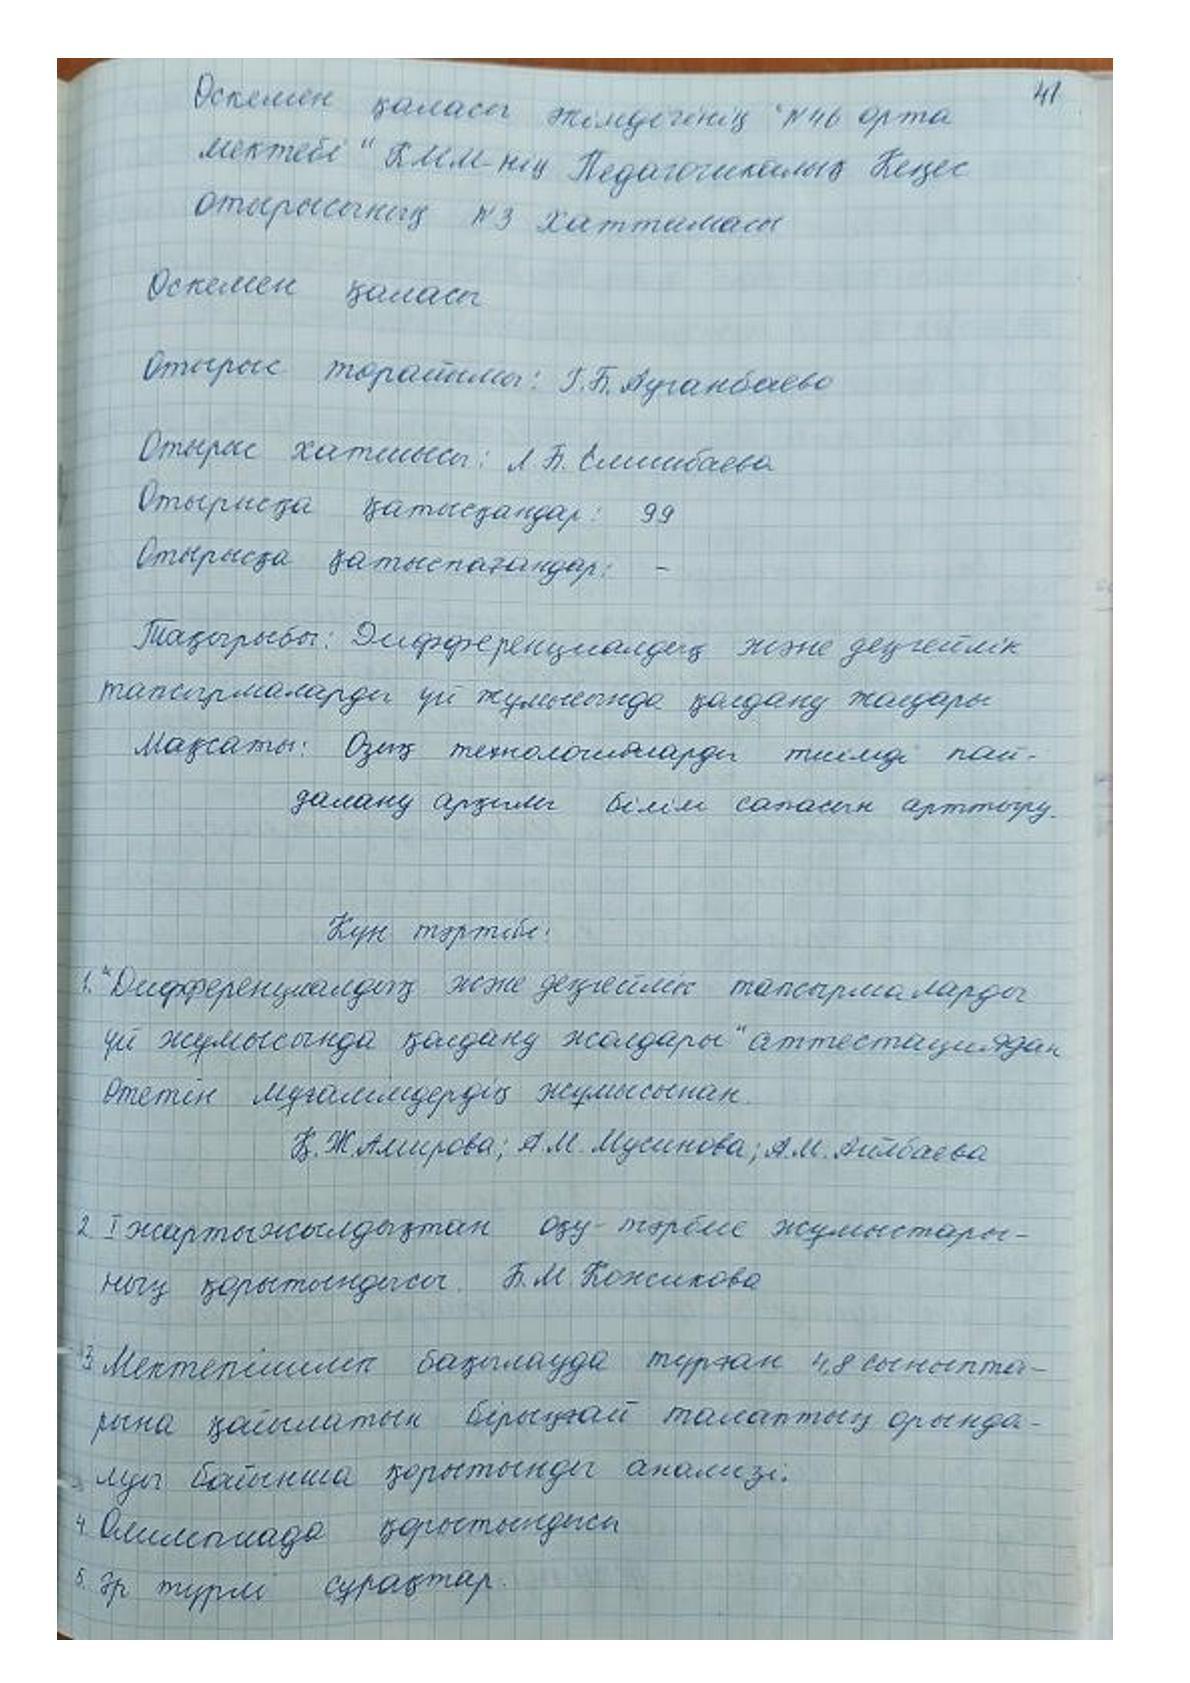 41
Өскемен қаласы әкімдігінің "№46 орта
мектебі" КММ-нің Педагогикалық Кеңес
отырысының №3 хаттамасы
Өскемен қаласы
Отырыс төрайымы: Г.Б. Ауганбаева
Отырыс хатшысы: Л.Б. Слямбаева
Отырысқа қатысқандар: 99
Отырысқа қатыспағандар: -
Тақырыбы: Дифференциалдық және деңгейлік
тапсырмаларды үй жұмысында қолдану жолдары
Мақсаты: Озық технологияларды тиімді пай-
далану арқылы білім сапасын арттыру.
Күн тәртібі:
1. "Дифференциалдық және деңгейлік тапсырмаларды
үй жұмысында қолдану жолдары" аттестациядан
өтетін мұғалімдердің жұмысынан.
Қ.Ж.Амирова; А.М. Мусинова; А.М. Айлбаева
2. I жартыжылдықтан оқу-тәрбие жұмыстары-
ның қорытындысы. Б.М. Кожикова
3. Мектепішілік бақылауда тұрған 4,8 сыныпта-
рына қойылатын бірыңғай талаптың орында-
луы бойынша қорытынды анализі.
4. Олимпиада қорытындысы
5. Әр түрлі сұрақтар.